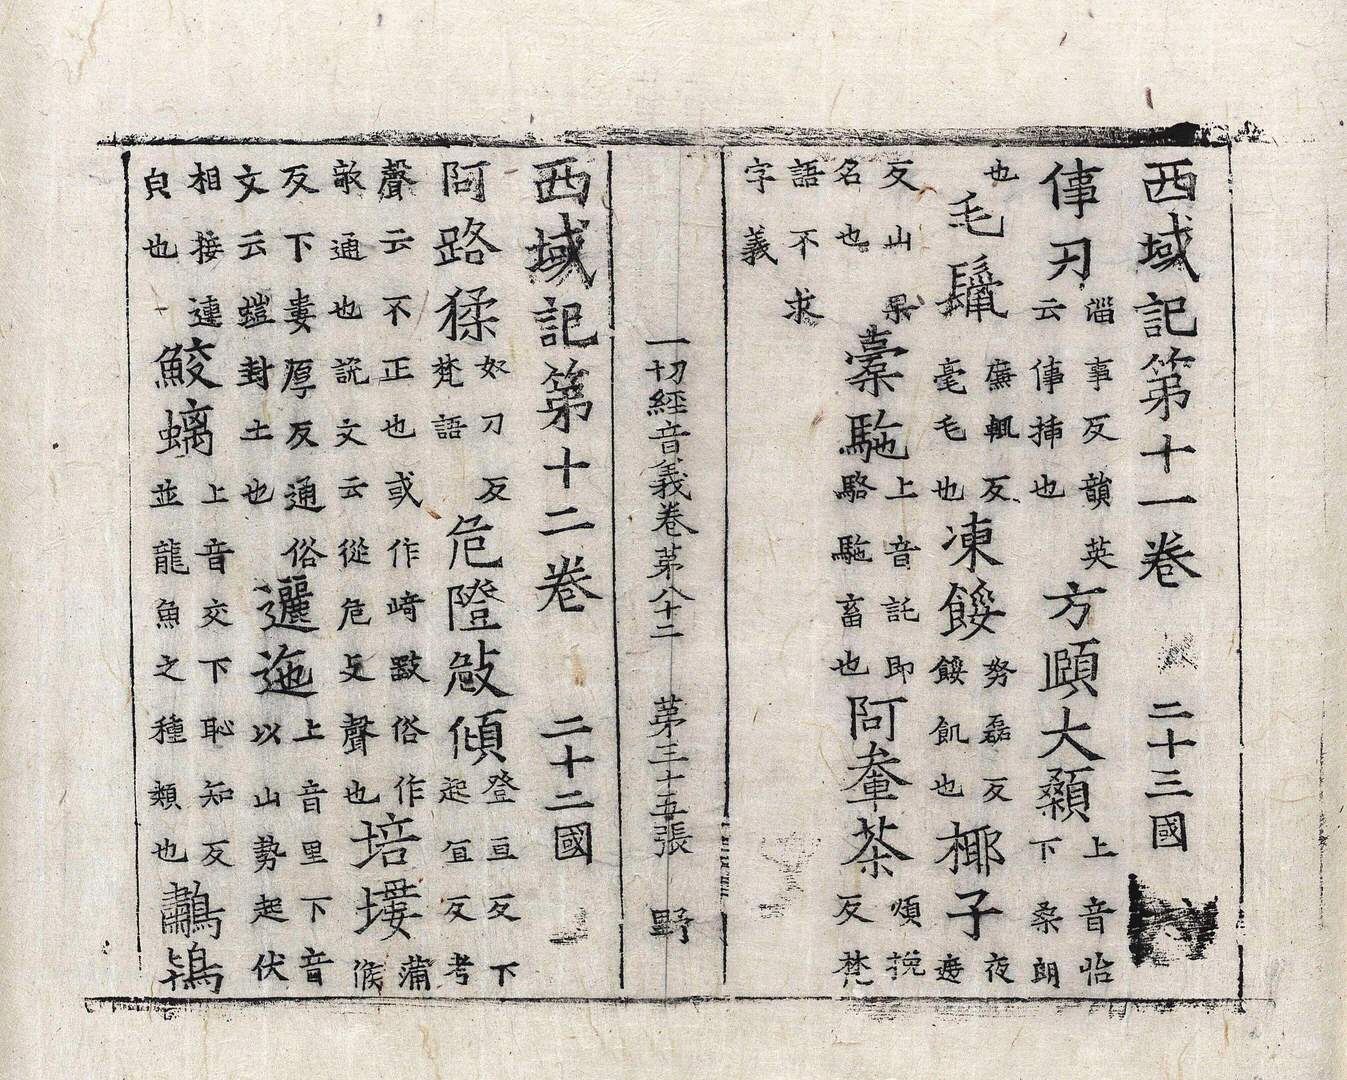 西域記第十一卷 二十三國
倳刃淄事反韻英云倳揷也方頤大顙上音怡下桑朗
也毛鬣廉輒反毫毛也凍餒努磊反餒飢也椰子夜遮
反山果名也槖駞上音託即駱駞畜也阿軬荼煩挽反梵
語不求字義
一切經音義卷第八十二 第三十五張 野
西域記第十二卷 二十二國
阿路猱奴刀反梵語危隥敧傾登亘反下起冝反考
聲云不正也或作崎㩻俗作敧通也說文云從危支聲也培塿蒲候
反下婁厚反通俗文云螘封土也邐迤上音里下音以山勢起伏
相接連皃也鮫螭上音交下恥知反並龍魚之種類也鷫鴇